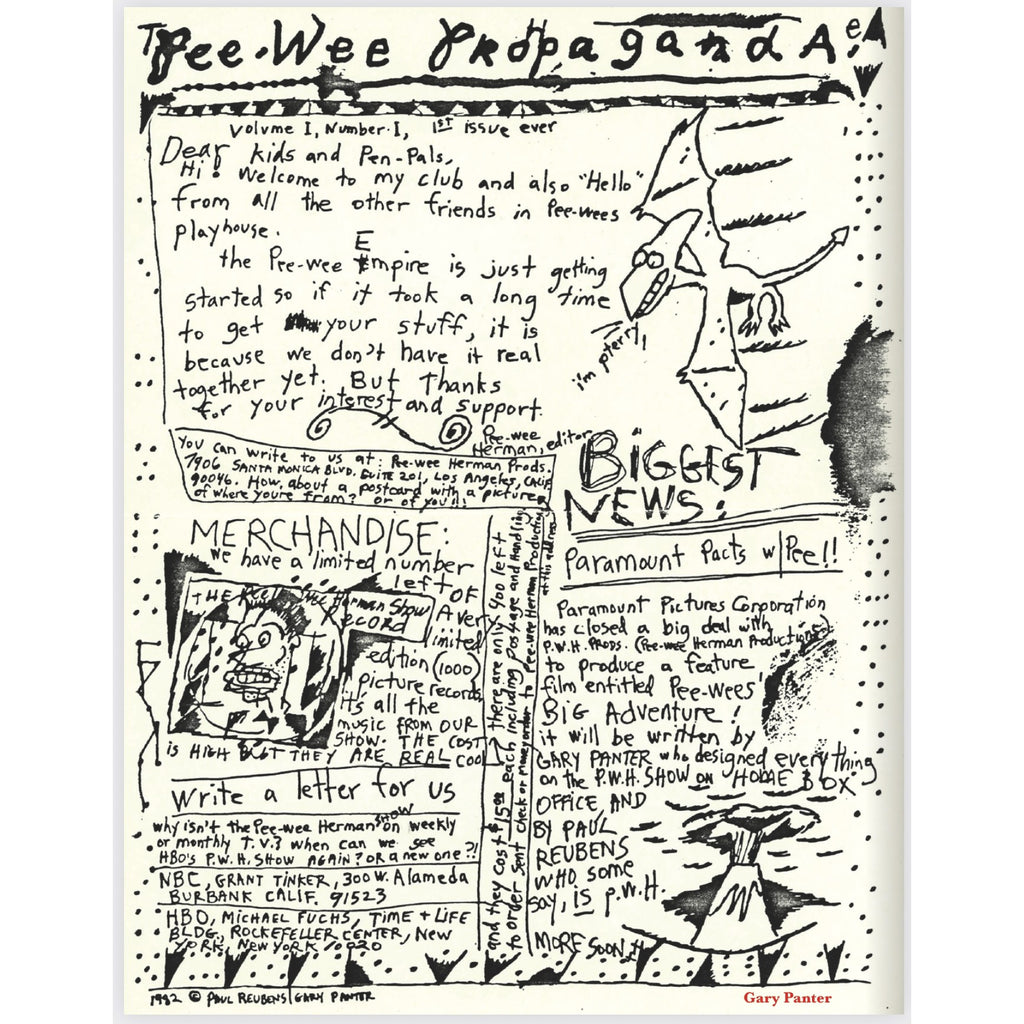 The Pee-Wee PROpagandA!
Volume I, Number I, 1st issue ever
Dear kids and Pen-Pals,
Hi! Welcome to my club and also "Hello"
from all the other friends in Pee-wees
playhouse.
the Pee-wee Empire is just getting
started so if it took a long time
to get your stuff, it is
because we don't have it real
together yet. But Thanks
for your interest and support.
Pee-wee
Herman, editor
I'm pterri!
You can write to us at: Pee-wee Herman Prods.
7906 SANTA MONICA BLVD. SUITE 201, LOS Angeles, CALIF.
90046. How, about a postcard with a picture
of where youre from? or of you!!!
MERCHANDISE:
we have a limited number
left OF
THE Pee Wee Herman Show
RECORD
A very
limited
edition (1000)
picture records
its all the
music FROM OUR
SHOW. THE COST
is HIGH BUT THEY ARE REAL COOL
there are only 400 left
and they cost $15.00 each including Postage and Handling
to order sent check or money order to Pee-wee Herman Productions
at this address
Write a letter for us
why isn't the Pee-wee Herman SHOW on weekly
or monthly T.V.? when can we see
HBO's P.W.H. SHOW AGAIN? OR a new one?!
NBC, GRANT TINKER, 300 W. Alameda
BURBANK CALIF. 91523
HBO, MICHAEL FUCHS, TIME + LIFE
BLDG, ROCKEFELLER CENTER, New
YORK, New York 10020
BIGGEST
NEWS:
Paramount Pacts w/Pee!!
Paramount Pictures Corporation
has closed a big deal with
P.W.H. PRODS. (Pee-wee Herman Productions)
to produce a feature
film entitled Pee-Wees'
BIG Adventure!
it will be written by
GARY PANTER who designed everything
on the P.W.H. SHOW on HOME BOX
OFFICE, AND
BY PAUL
REUBENS
WHO some
say, is P.W.H.
MORE SOON
1982 © PAUL REUBENS/GARY PANTER
Gary Panter